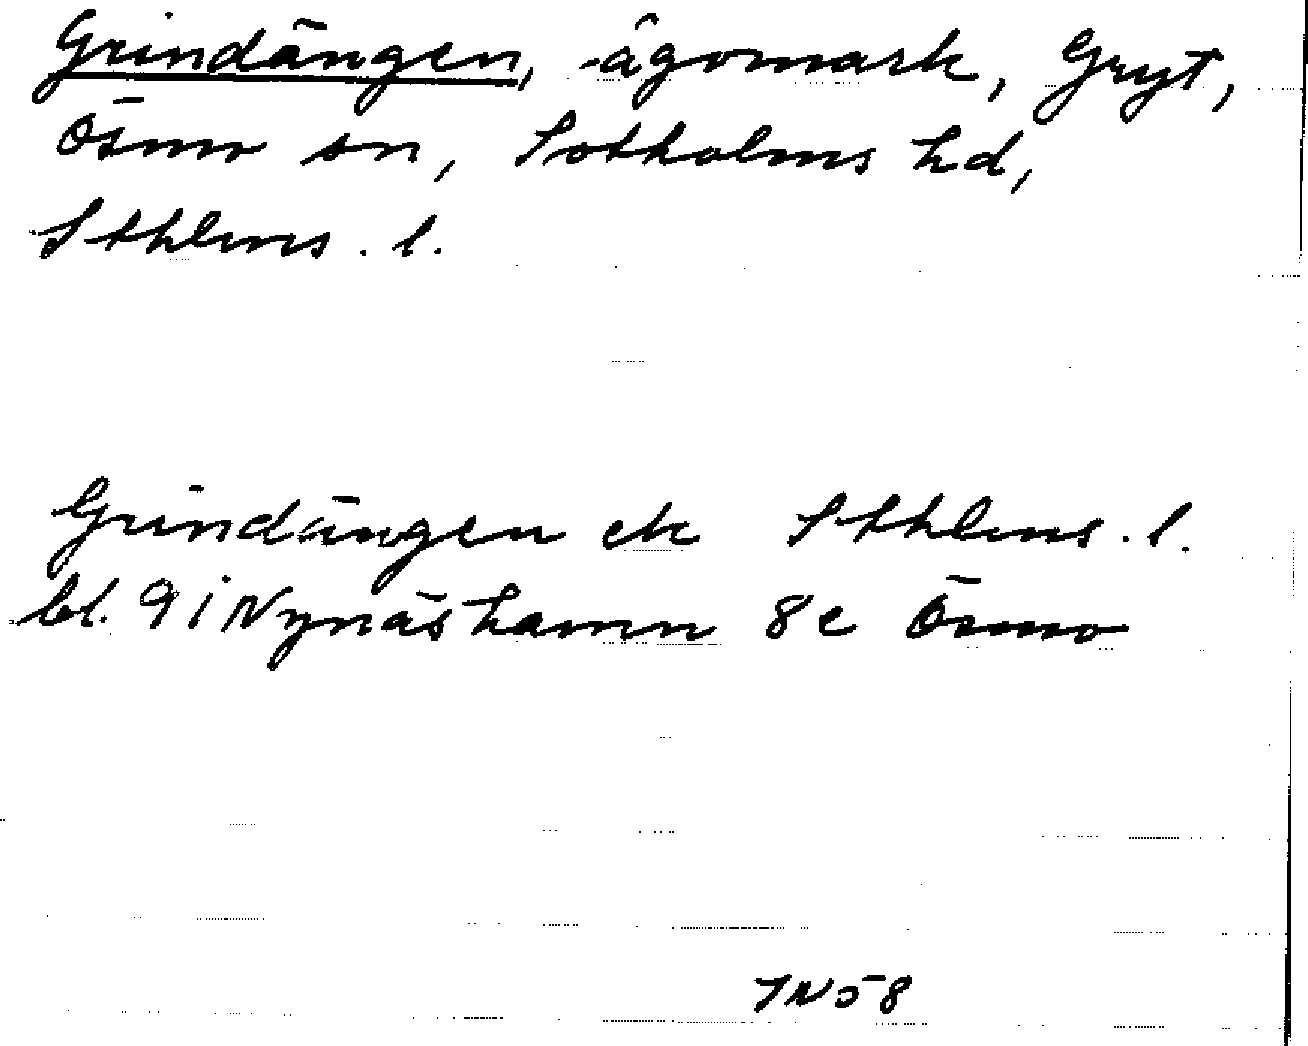 Grindängen, ägomark, Gryt,
Ösmo sn, Sotholms hd,
Sthlms. l.
Grindängen ek Sthlms. l.
bl. 9 i Nynäshamn 8e Ösmo
IN58